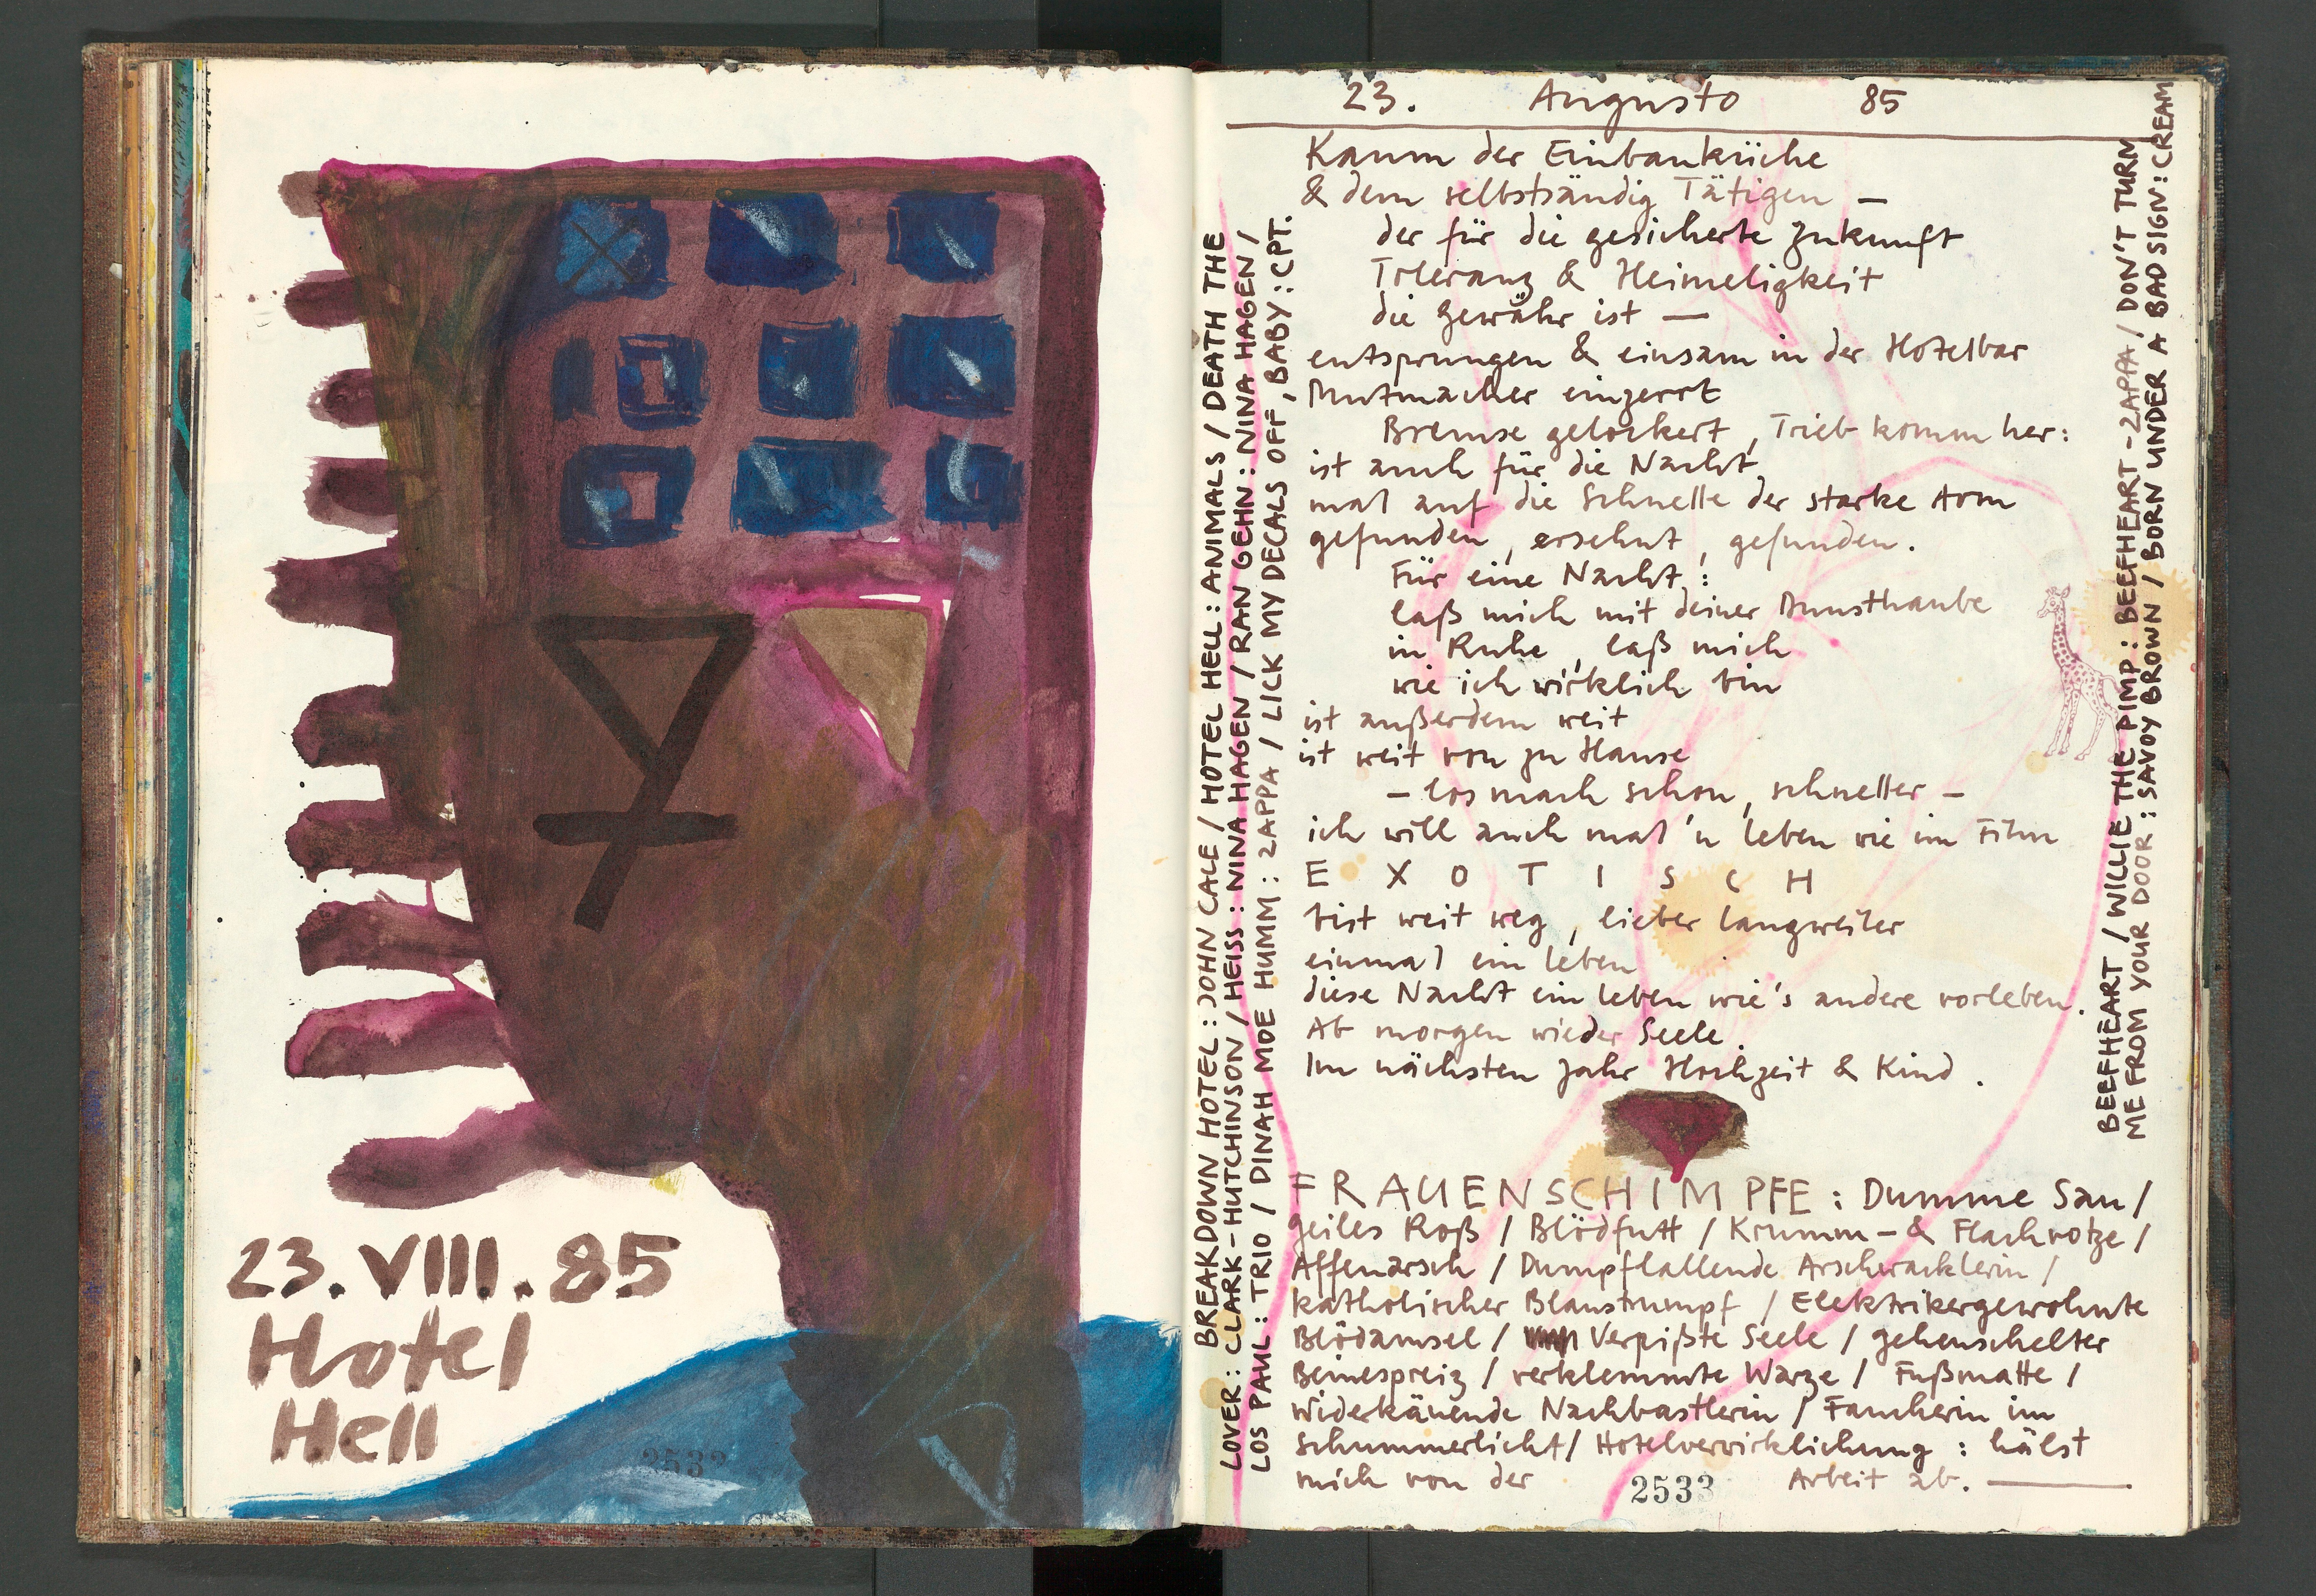 23. VIII. 85
Hotel
Hell
2533
23. Augusto 85
Kaum der Einbauküche
& dem selbständig Tätigen —
der für die gesicherte Zukunft
Toleranz & Heimeligkeit
die gewähr ist —
entsprungen & einsam in der Hotelbar
Mutmacher eingezerrt
Bremse gelockert, Trieb komm her:
ist auch für die Nacht
mal auf die Schnelle der starke Arm
gefunden, ersehnt, gefunden.
Für eine Nacht:
laß mich mit deiner Dunsthaube
in Ruhe, laß mich
wie ich wirklich bin
ist außerdem weit
ist weit von zu Hause
– los mach schon, schneller –
ich will auch mal 'n Leben wie im Film
E X O T I S C H
bist weit weg, lieber langweiler
einmal ein Leben
diese Nacht ein Leben wie's andere vorleben.
Ab morgen wieder Seele.
Im nächsten Jahr Hochzeit & Kind.
FRAUENSCHIMPFE: Dumme Sau /
geiles Roß / Blödfutt / Krumm- & Flachvotze /
Affenarsch / Dumpflallende Arschwacklerin /
katholischer Blaustrumpf / Elektrikergewohnte
Blödamsel / Verpißte Seele / gehenschelter
Beinespreiz / verklemmte Warze / Fußmatte /
Widerkäuende Nachbastlerin / Faucherin im
Schummerlicht / Hotelverwirklichung: hälst
mich von der Arbeit ab. —
2533
BREAKDOWN HOTEL: JOHN CALE / HOTEL HELL: ANIMALS / DEATH THE
LOVER: CLARK-HUTCHINSON / HEISS: NINA HAGEN / RAN GEHN: NINA HAGEN /
LOS PAUL: TRIO / DINAH MOE HUMM: ZAPPA / LICK MY DECALS OFF, BABY: CPT.
BEEFHEART / WILLIE THE PIMP: BEEFHEART-ZAPPA / DON'T TURN
ME FROM YOUR DOOR: SAVOY BROWN / BORN UNDER A BAD SIGN: CREAM